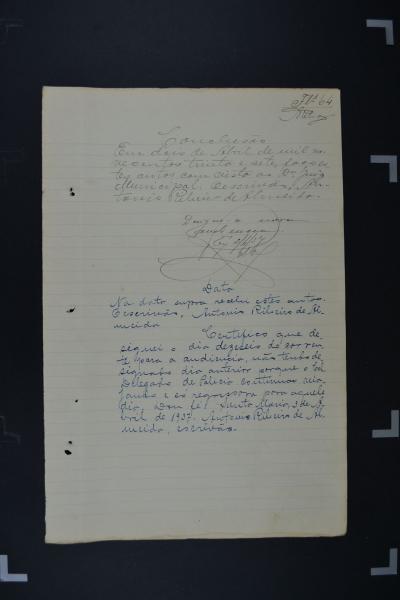 Fls 64
Conclusão
Em dois de Abril de mil no-
vecentos trinta e sete faço es-
tes autos com vista ao Dr Juiz
Municipal. Escrivão, An-
tonio Ribeiro de Almeida.
Designe o
Data
Na data supra recebi estes autos.
O escrivão, Antonio Ribeiro de Al-
meida
Certifico que de-
signei o dia dezeseis do corren-
te para a audiencia, não tendo de-
signado dia anterior porque o
Delegado de Policia continua via-
jando e só regressará para aquele
dia. Dou fé. Santa Maria, 3 de A-
bril de 1937. Antonio Ribeiro de Al-
meida, escrivão.